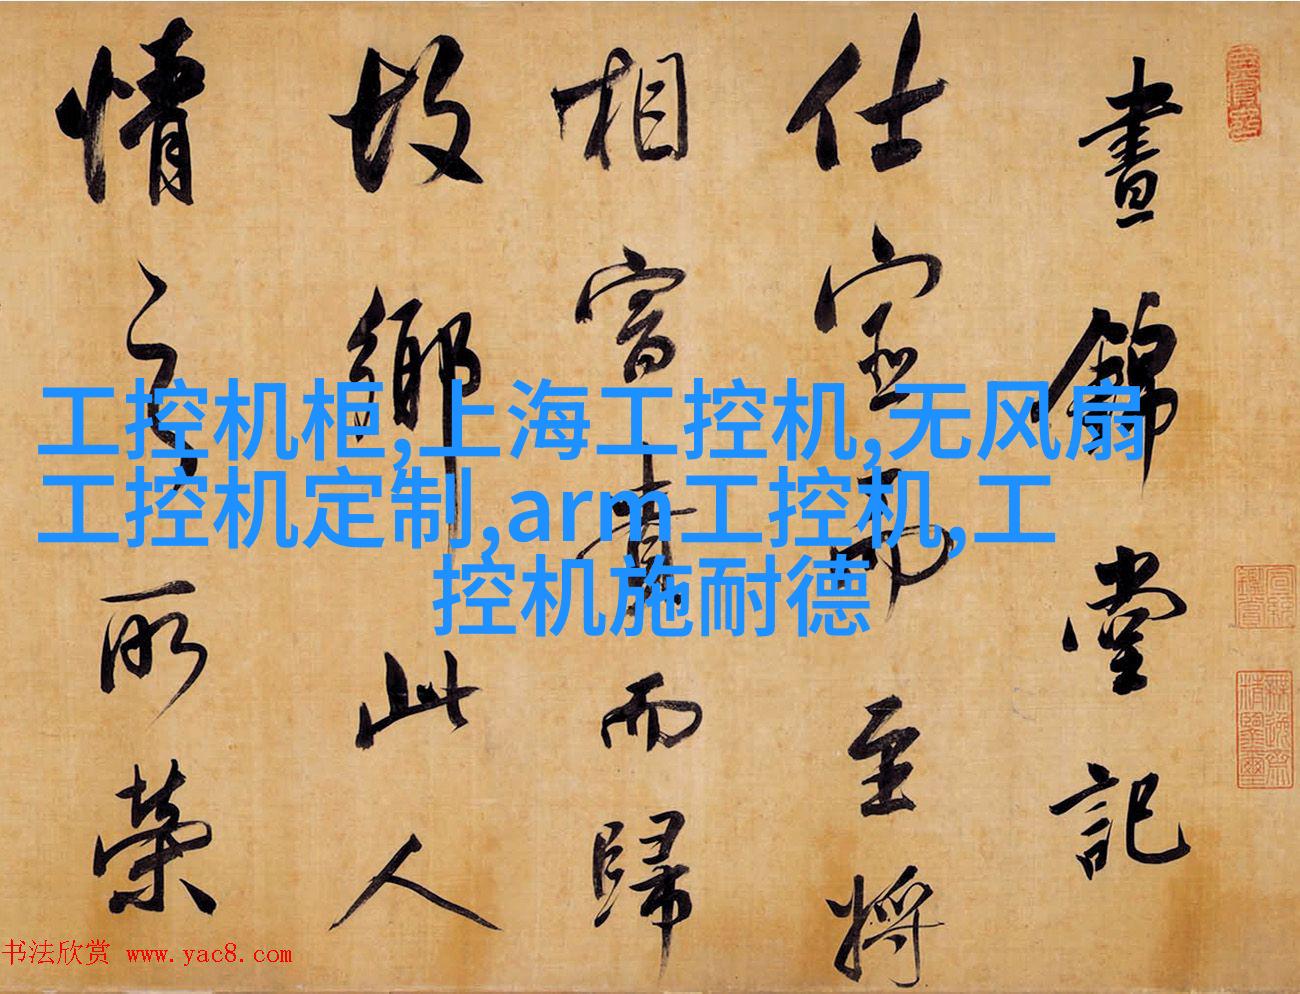 晝錦堂記
仕宦而至將
相富貴而歸
故鄉此人
情之所榮
工控机柜,上海工控机,无风扇
工控机定制,arm工控机,工
控机施耐德
书法欣赏 www.yac8.com